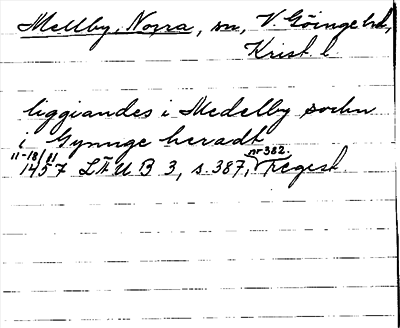 Mellby, Norra, sn, V. Göinge hd,
Krist. l.
liggiandes i Medelby sochn
i Gynnge heradt
11-18/11
1457 LÄUB 3, s. 387, nr 382. Regest.